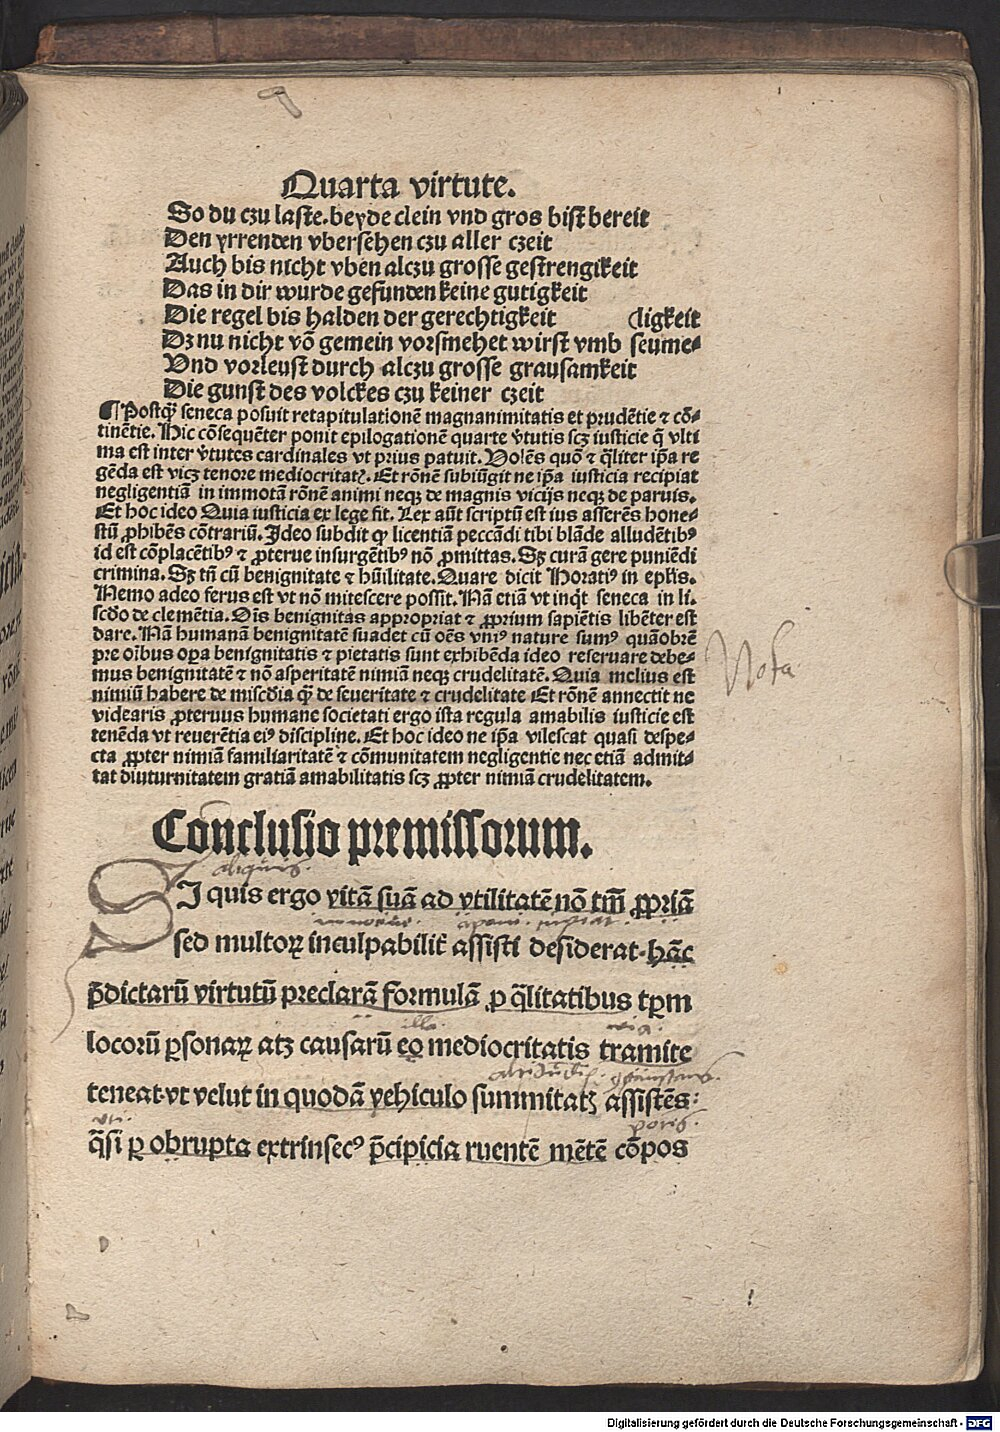 Quarta virtute.
So du czu laste. beyde clein vnd gros bist bereit
Den yrrenden vbersehen czu aller czeit
Auch bis nicht vben alczu grosse gestrengikeit
Das in dir wurde gefunden keine gutigkeit
Die regel bis halden der gerechtigkeit (ligkeit
Dz nu nicht võ gemein vorsmehet wirst vmb seume-
Vnd vorleust durch alczu grosse grausamkeit
Die gunst des volckes czu keiner czeit
¶ Postq̃ seneca posuit retapitulationẽ magnanimitatis et prudẽtie ⁊ cõ-
tinẽtie. Hic cõsequẽter ponit epilogationẽ quarte v̾tutis scꝫ iusticie q̃ vlti
ma est inter v̾tutes cardinales vt prius patuit. Volẽs quõ ⁊ q̃liter ip̃a re
gẽda est vicꝫ tenore mediocritatꝭ. Et rõnẽ subiũgit ne ip̃a iusticia recipiat
negligentiã in immotã rõnẽ animi neqꝫ de magnis vicijs neqꝫ de paruis.
Et hoc ideo Quia iusticia ex lege fit. Lex aũt scriptũ est ius asserẽs hone-
stũ ꝓhibẽs cõtrariũ. Ideo subdit ꝙ licentiã peccãdi tibi blãde alludẽtibꝰ
id est cõplacẽtibꝰ ⁊ ꝓterue insurgẽtibꝰ nõ ꝓmittas. Sꝫ curã gere puniẽdi
crimina. Sꝫ tñ cũ benignitate ⁊ hũilitate. Quare dicit Horatiꝰ in epl̃is.
Nemo adeo ferus est vt nõ mitescere possit. Nã etiã vt inq̃t seneca in li.
scđo de clemẽtia. Oĩs benignitas appropriat ⁊ ꝓprium sapiẽtis libẽter est
dare. Nã humanã benignitatẽ suadet cũ oẽs vniꝰ nature sumꝰ quãobrẽ
pre oĩbus oꝑa benignitatis ⁊ pietatis sunt exhibẽda ideo reseruare debe-
mus benignitatẽ ⁊ nõ asperitatẽ nimiã neqꝫ crudelitatẽ. Quia melius est
nimiũ habere de misc̃dia q̃ de seueritate ⁊ crudelitate Et rõnẽ annectit ne
videaris ꝓteruus humane societati ergo ista regula amabilis iusticie est
tenẽda vt reuerẽtia eiꝰ discipline. Et hoc ideo ne ip̃a vilescat quasi despe-
cta ꝓpter nimiã familiaritatẽ ⁊ cõmunitatem negligentie nec etiã admit-
tat diuturnitatem gratiã amabilitatis scꝫ ꝓpter nimiã crudelitatem.
Nota
Conclusio premissorum.
SI quis ergo vitã suã ad vtilitatẽ nõ tm̃ ꝓpriã
sed multoꝝ inculpabilit̾ assisti desiderat. hãc
p̃dictarũ virtutũ preclarã formulã ꝓ q̃litatibus tꝑm
locorũ ꝑsonaꝝ atꝫ causarũ eo mediocritatis tramite
teneat. vt velut in quodã vehiculo summitatꝫ assistẽs:
q̃si ꝑ obrupta extrinsecꝰ p̃cipicia ruentẽ mẽtẽ cõpos
Digitalisierung gefördert durch die Deutsche Forschungsgemeinschaft - DFG